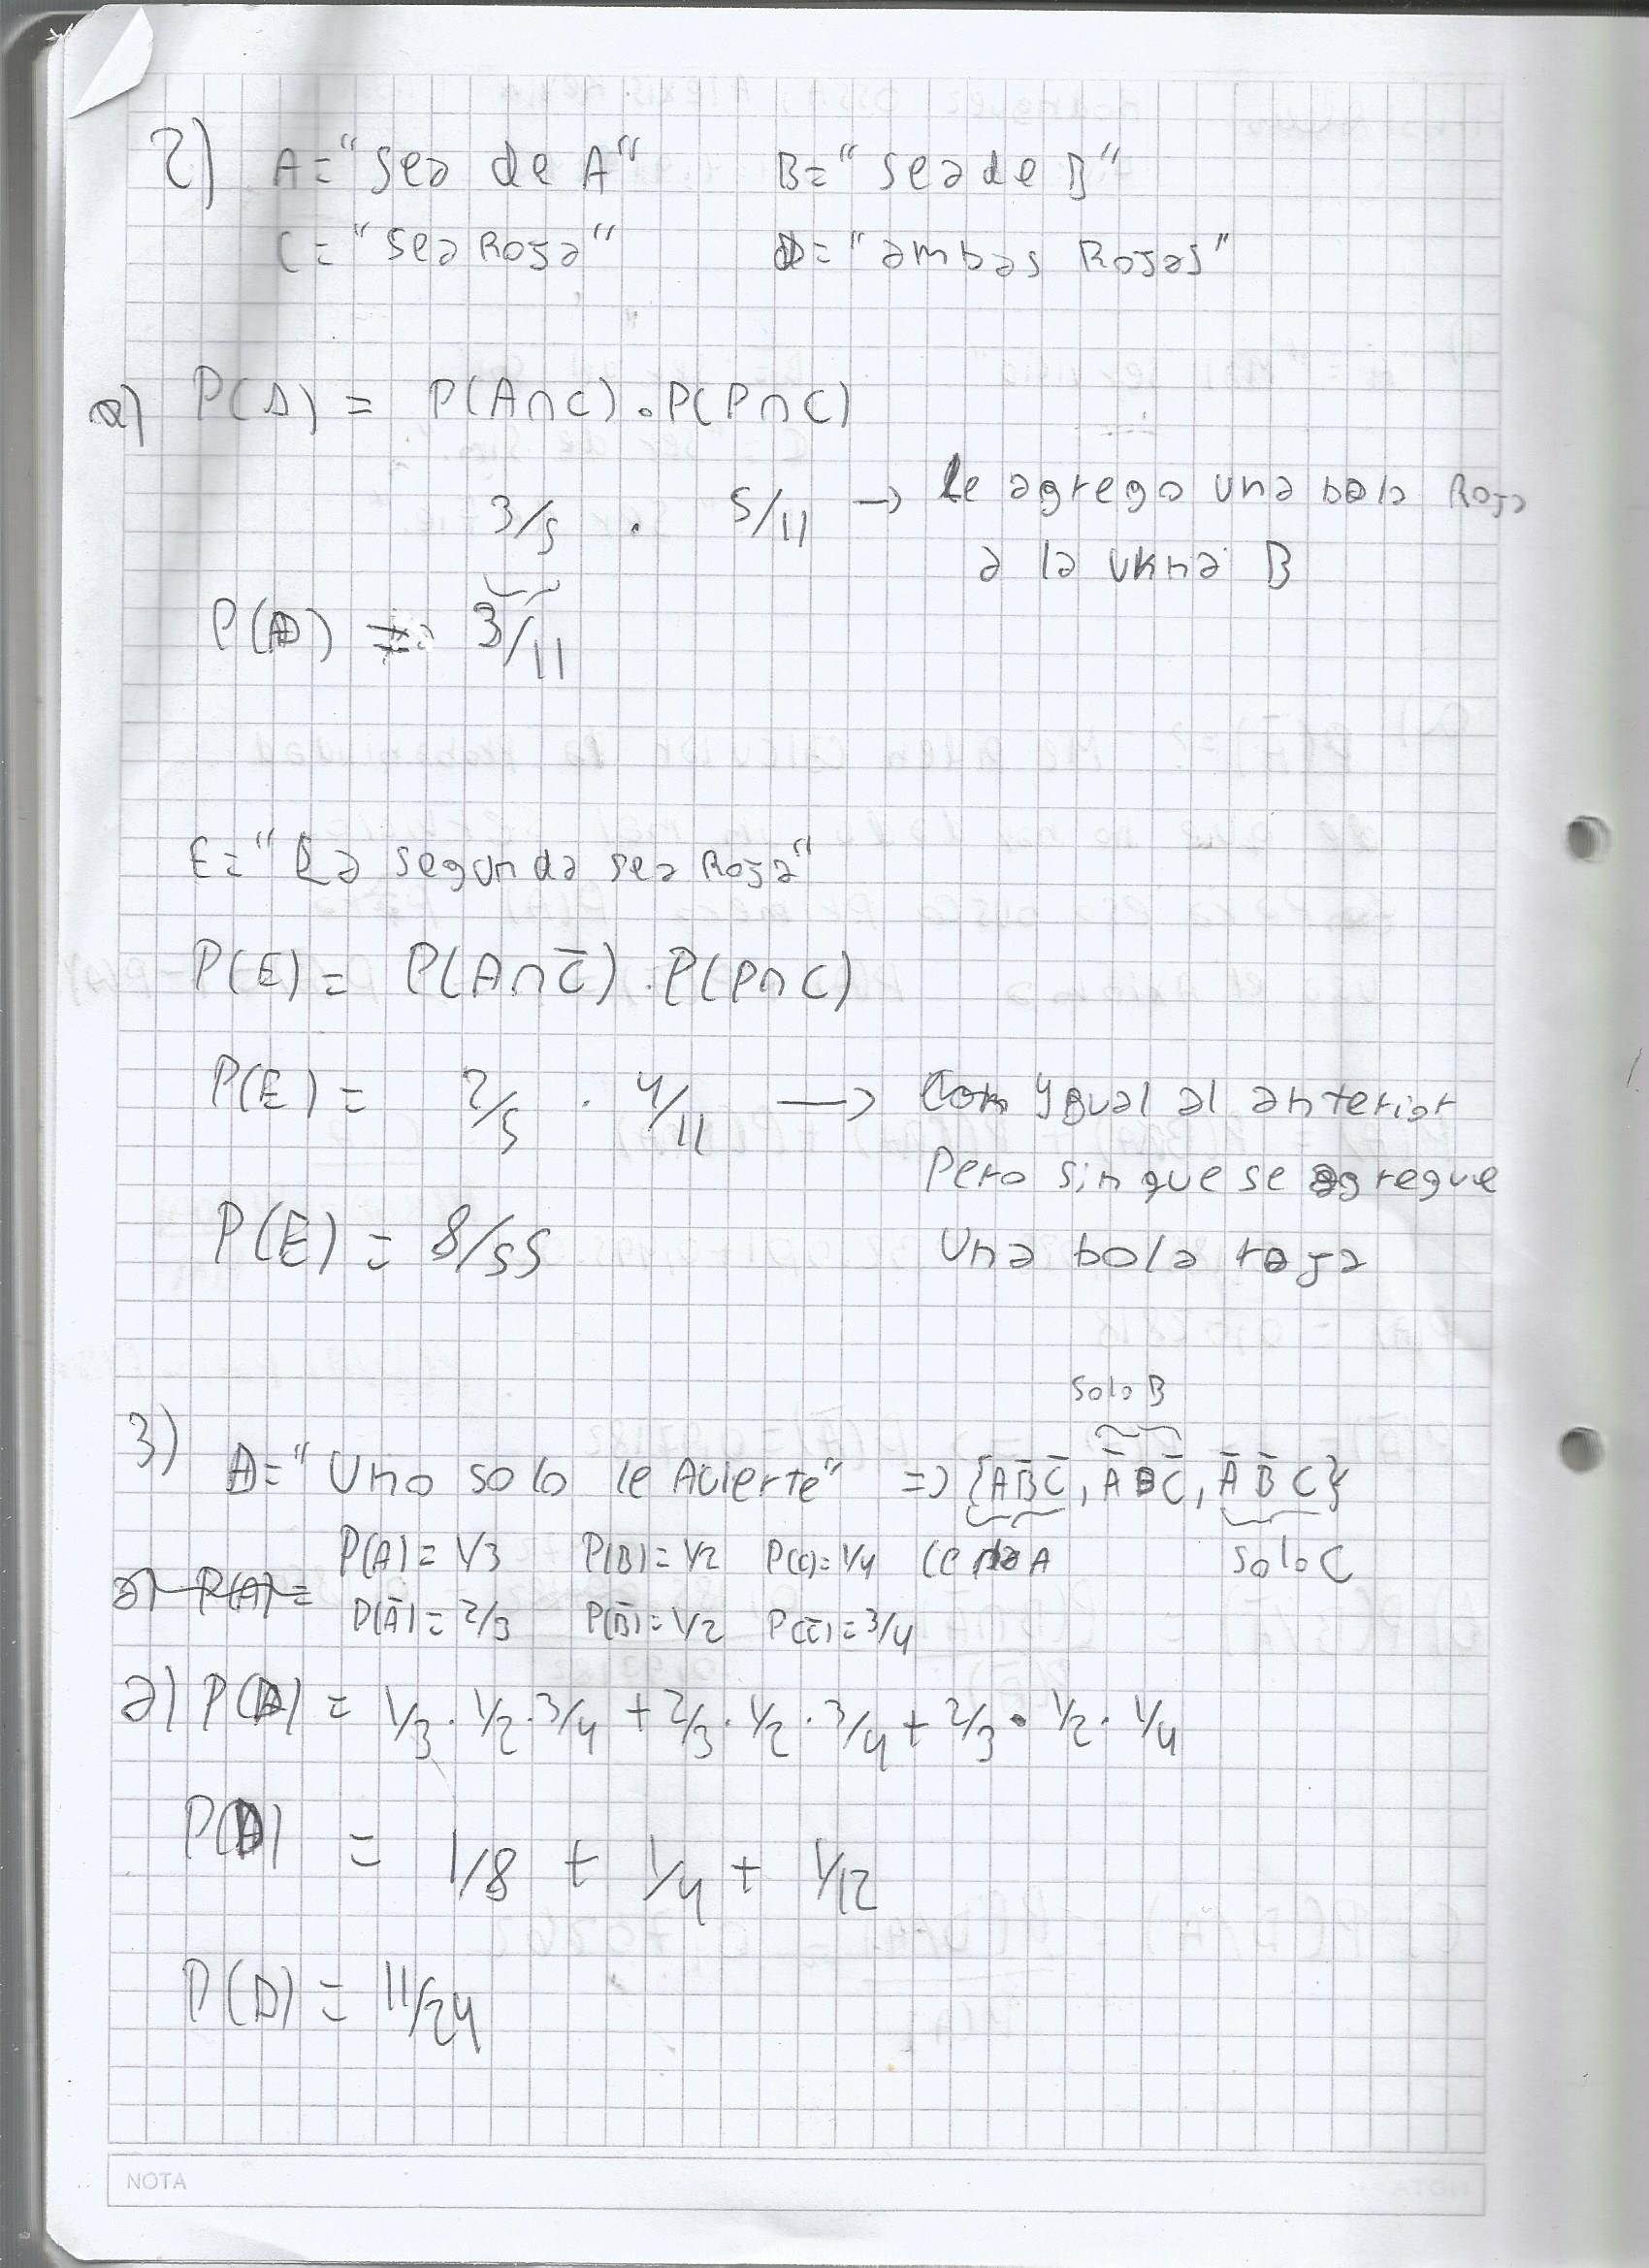 2) A = "sea de A" B = "sea de B"
C = "sea Roja" D = "ambas Rojas"
a) P(D) = P(A∩C) . P(P∩C)
3/5 . 5/11 → le agrego una bola Roja
a la urna B
P(D) = 3/11
E = "La segunda sea Roja"
P(E) = P(A∩C̄) . P(P∩C)
P(E) = 2/5 . 4/11 → Con ygual al anterior
Pero sin que se agregue
Una bola roja
P(E) = 8/55
Solo B
3) D = "Uno solo le Acierte" => {A B̄ C̄, Ā B C̄, Ā B̄ C}
P(A) = 1/3 P(B) = 1/2 P(C) = 1/4 A Solo C
a) P(A) =
P(Ā) = 2/3 P(B̄) = 1/2 P(C̄) = 3/4
a) P(D) = 1/3 . 1/2 . 3/4 + 2/3 . 1/2 . 3/4 + 2/3 . 1/2 . 1/4
P(D) = 1/8 + 1/4 + 1/12
P(D) = 11/24
NOTA